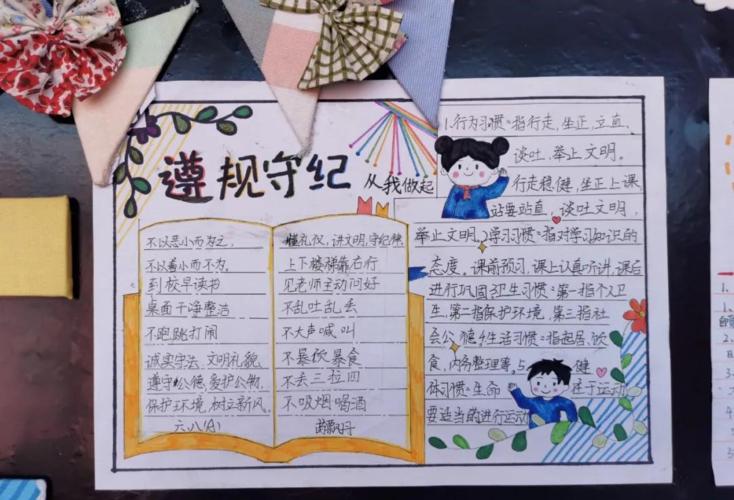 遵规守纪
从我做起
不以恶小而为之,
不以善小而不为。
到校早读书
桌面干净整洁
不跑跳打闹
诚实守法,文明礼貌,
遵守公德,爱护公物,
保护环境,树立新风。
六、八(A)
懂礼仪,讲文明,守纪律
上下楼梯靠右行
见老师主动问好
不乱吐乱丢
不大声喊叫
不暴饮暴食
不丢三拉四
不吸烟喝酒
1.行为习惯:指行走,坐正,立直,
谈吐,举止文明。
行走稳健,坐正上课
站要站直,谈吐文明,
举止文明.2学习习惯:指对学习知识的
态度,课前预习,课上认真听讲,课后
进行巩固3卫生习惯:第一指个人卫
生,第二指保护环境,第三指社
会公德4生活习惯:指起居,饮
食,内务整理等。5健
体习惯:生命在于运动
要适当的进行运动